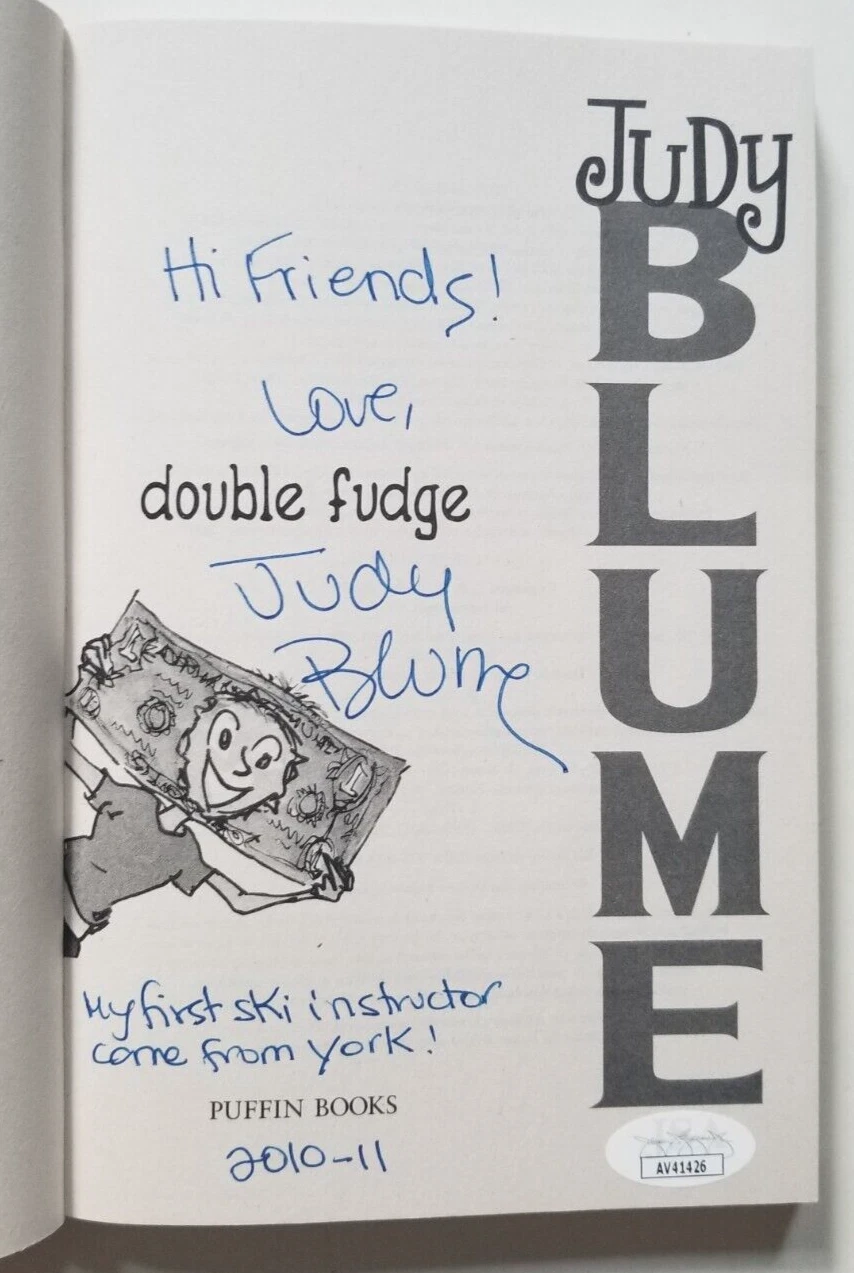 Judy
BLUME
Hi Friends!
Love,
double fudge
Judy
Blume
My first ski instructor
came from York!
PUFFIN BOOKS
2010-11
AV41426